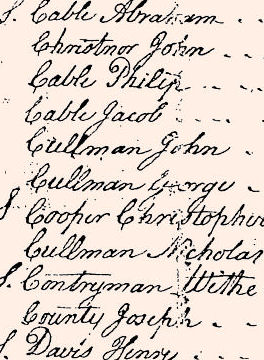 S. Cable Abraham - -
Christnor John - -
Cable Philip - -
Cable Jacob - -
Cullman John -
Cullman George -
S Cooper Christopher
Cullman Nicholas
S. Contryman Withe
County Joseph - -
S. Davis Henry - -